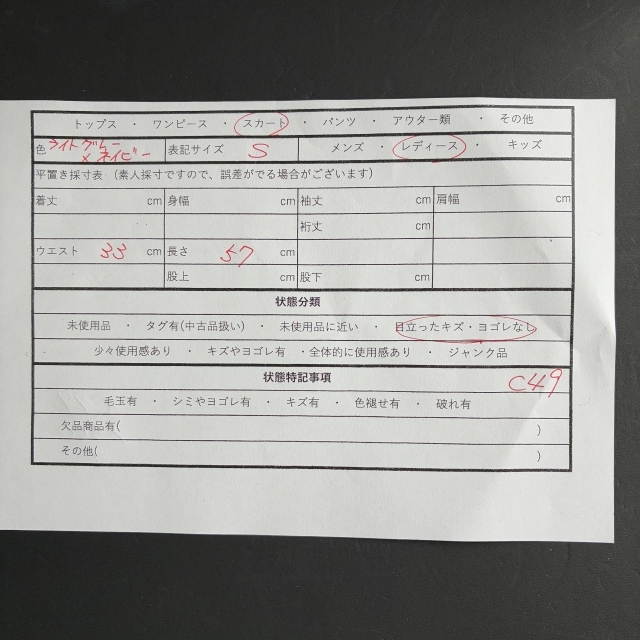 トップス ・ ワンピース ・ スカート ・ パンツ ・ アウター類 ・ その他
色 ライトグレー×ネイビー 表記サイズ S メンズ ・ レディース ・ キッズ
平置き採寸表 (素人採寸ですので、誤差がでる場合がございます)
着丈 cm 身幅 cm 袖丈 cm 肩幅 cm
裄丈 cm
ウエスト 33 cm 長さ 57 cm
股上 cm 股下 cm
状態分類
未使用品 ・ タグ有(中古品扱い) ・ 未使用品に近い ・ 目立ったキズ・ヨゴレなし
少々使用感あり ・ キズやヨゴレ有 ・全体的に使用感あり ・ ジャンク品
状態特記事項 C49
毛玉有 ・ シミやヨゴレ有 ・ キズ有 ・ 色褪せ有 ・ 破れ有
欠品商品有( )
その他( )